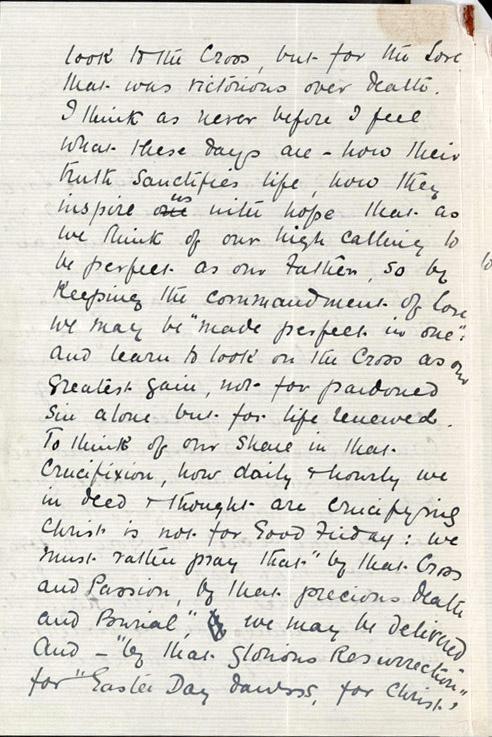 look to the Cross, but for the Love
that was victorious over death.
I think as never before I feel
what these days are - how their
truth sanctifies life, how they
inspire one us with hope that as
we think of our high calling to
be perfect as our Father, so by
keeping the commandment of love
we may be "made perfect in one":
and learn to look on the Cross as our
greatest gain, not for pardoned
sin alone but for life renewed.
To think of our share in that
Crucifixion, how daily & hourly we
in deed & thought are crucifying
Christ is not for Good Friday: we
must rather pray that "by that Cross
and Passion, by that precious death
and Burial," we may be delivered
And - "by that glorious Resurrection"
for "Easter Day dawns, for Christ